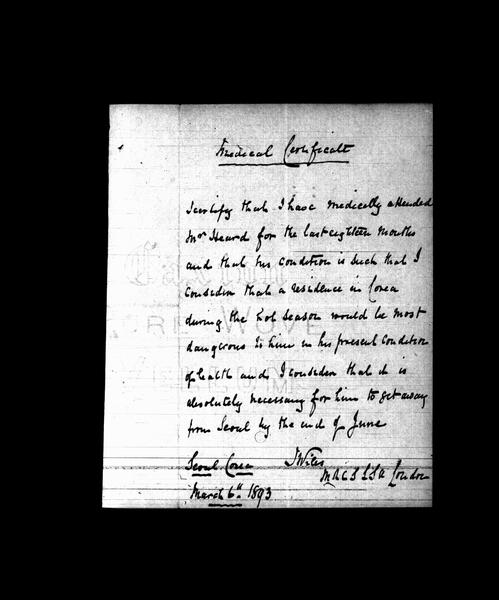 Medical Certificate
I certify that I have medically attended
Mr Heard for the last eighteen months
and that his condition is such that I
consider that a residence in Corea
during the hot season would be most
dangerous to him in his present condition
of health and I consider that it is
absolutely necessary for him to get away
from Seoul by the end of June
Seoul. Corea
J Wiles
MRCS LSA London
March 6th 1893